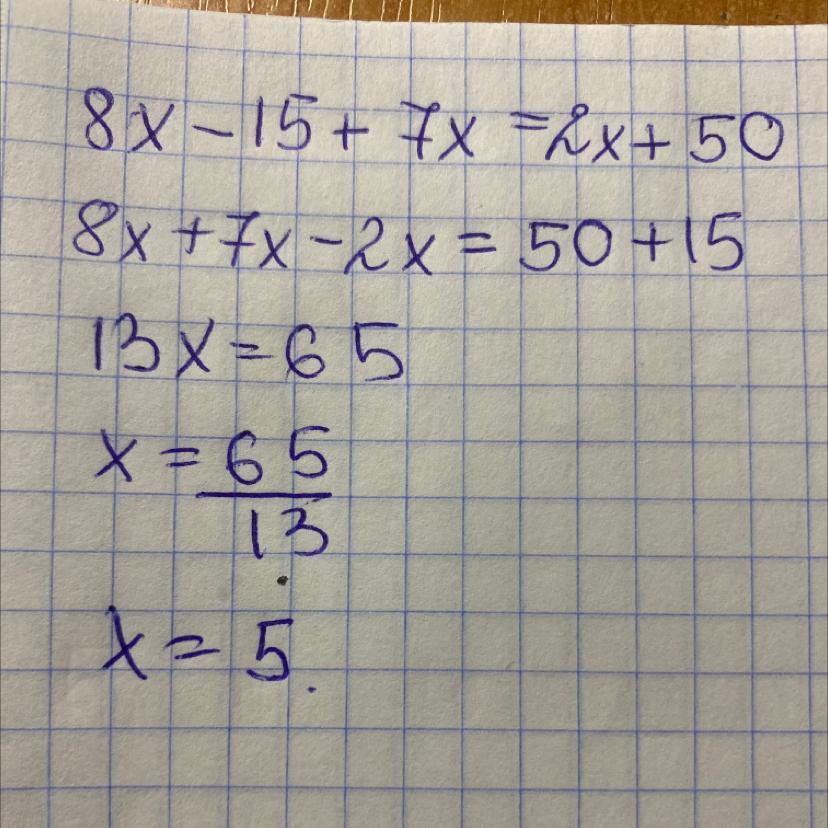 8x - 15 + 7x = 2x + 50
8x + 7x - 2x = 50 + 15
13x = 65
x = 65
13
x = 5.